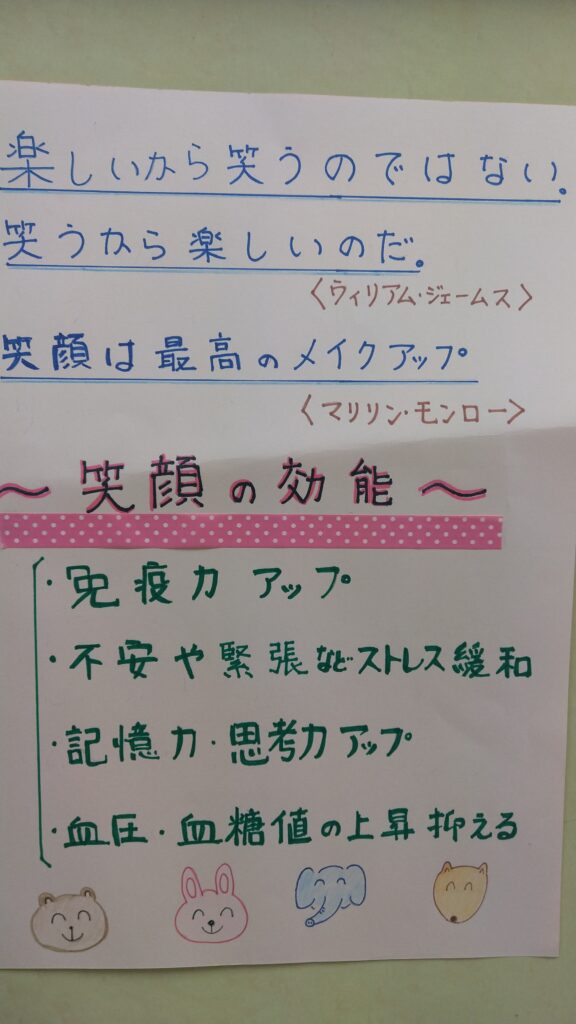 楽しいから笑うのではない。
笑うから楽しいのだ。
〈ウィリアム・ジェームス〉
笑顔は最高のメイクアップ
〈マリリン・モンロー〉
～笑顔の効能～
・免疫力アップ
・不安や緊張などストレス緩和
・記憶力・思考力アップ
・血圧・血糖値の上昇抑える